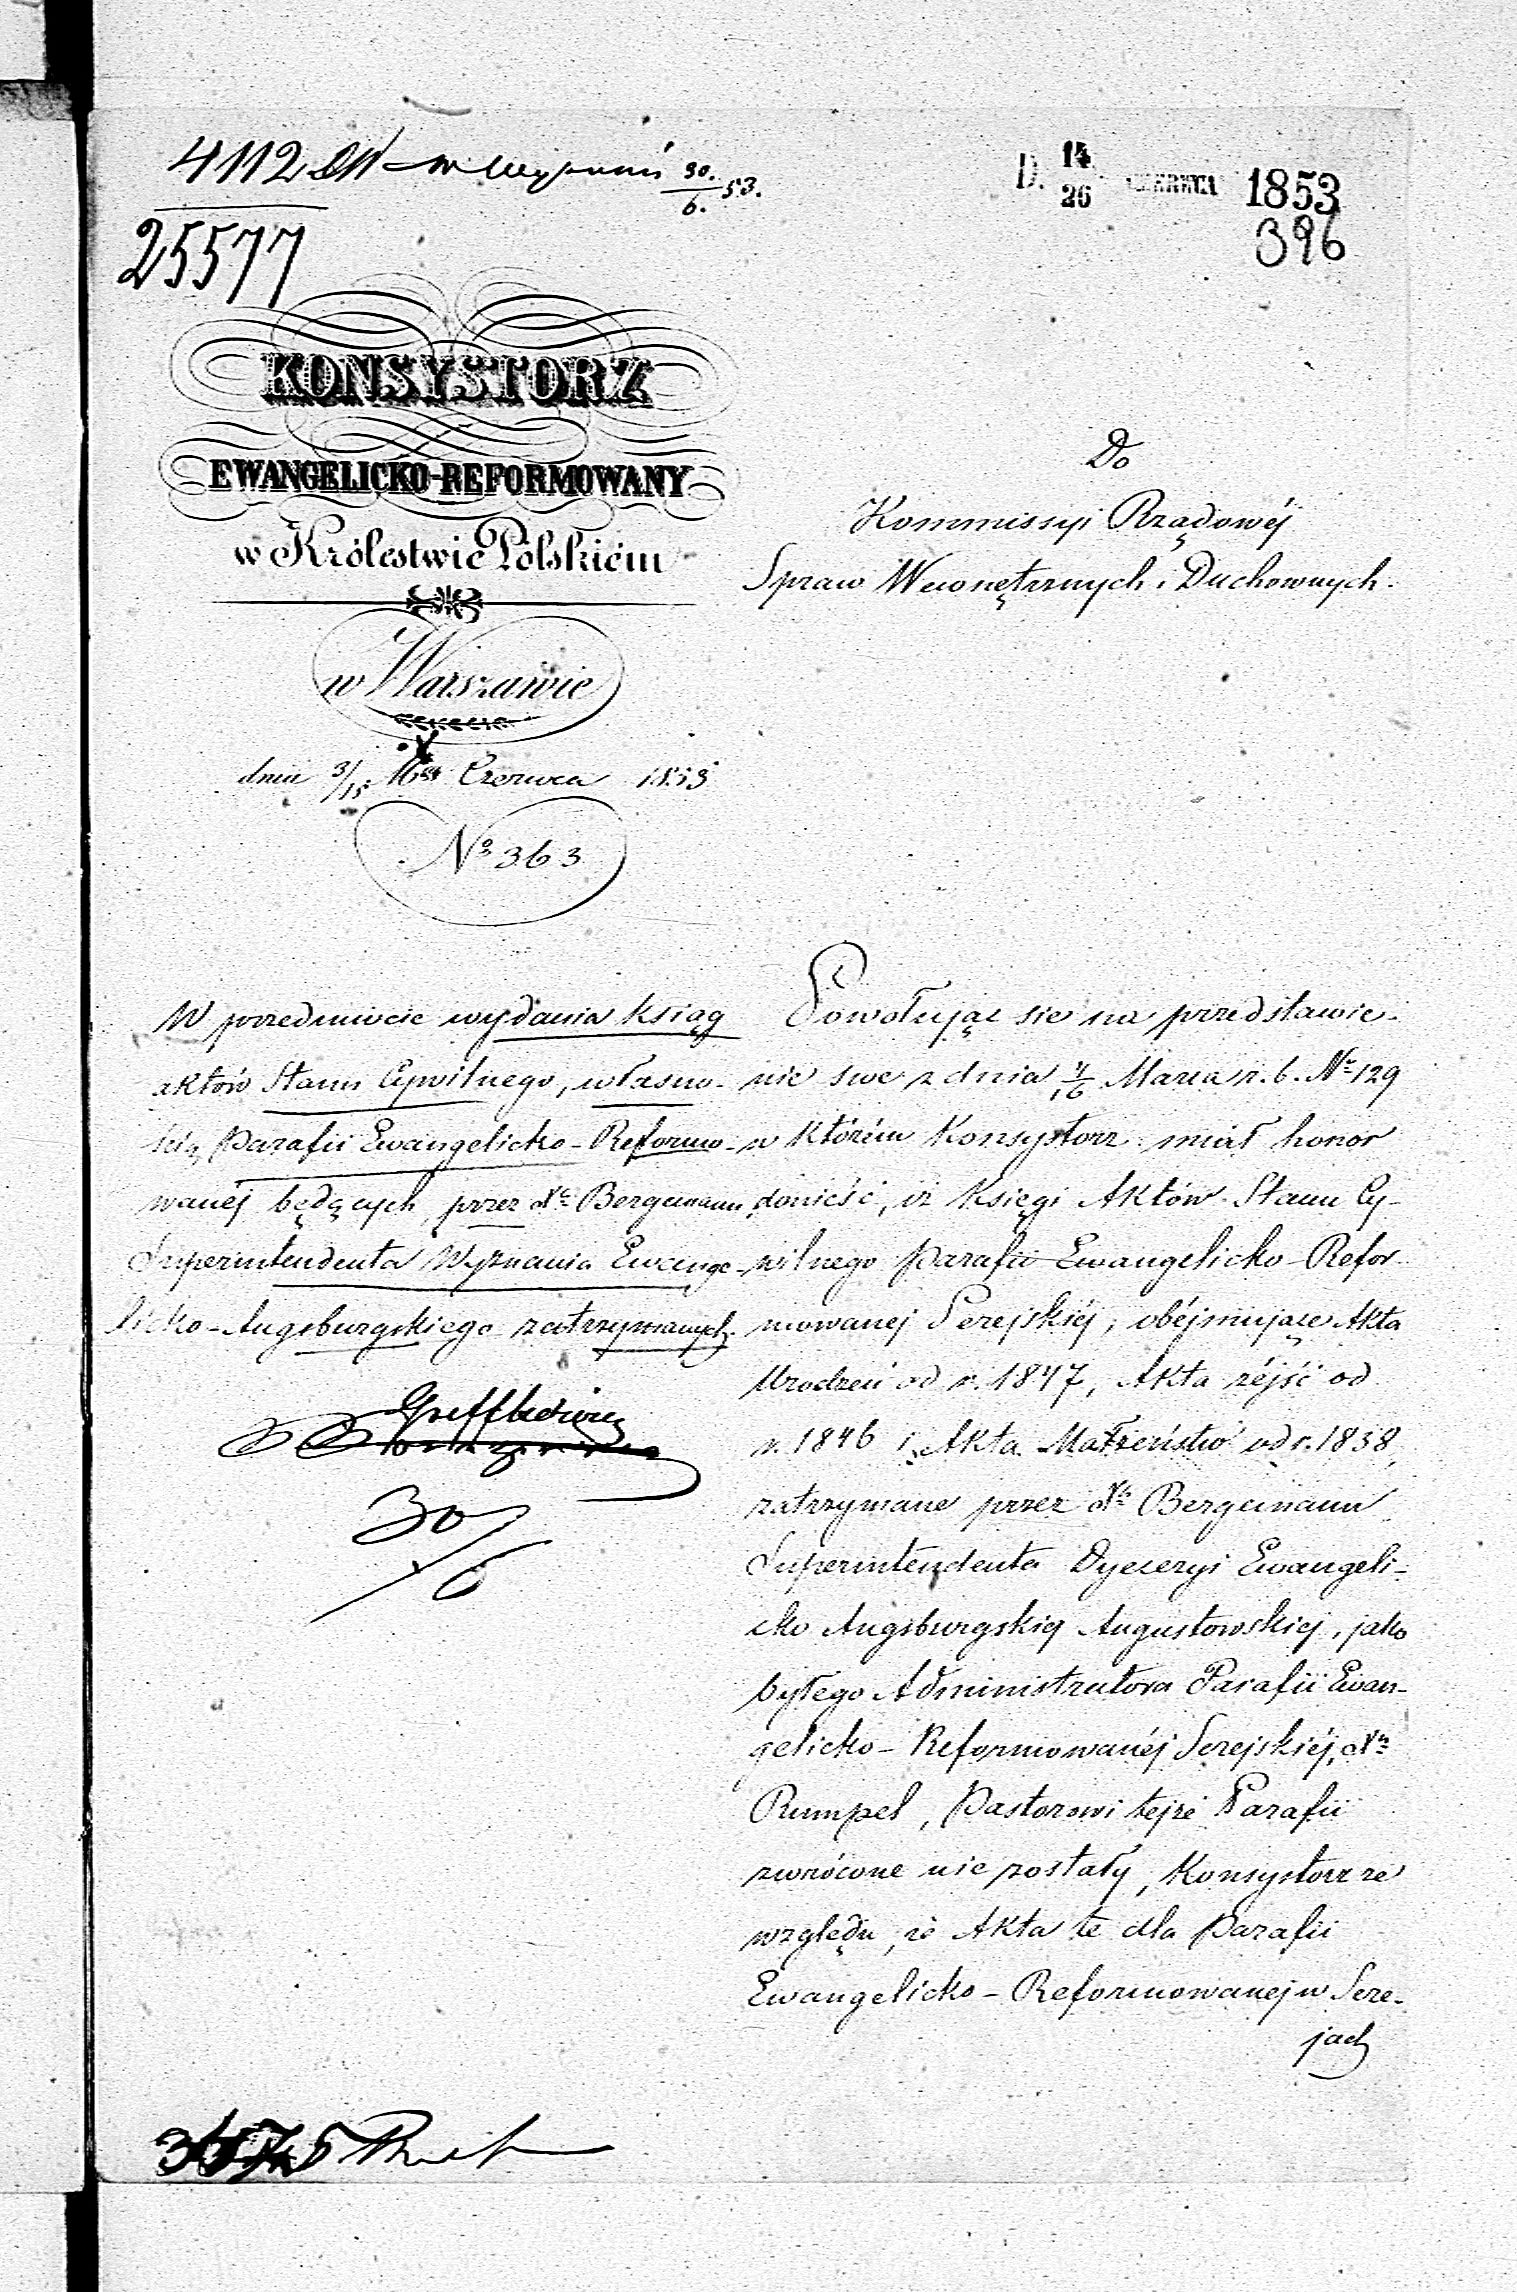 4112 30./6. 53.
25577
D. 14/26 CZERWCA 1853
396
KONSYSTORZ
EWANGELICKO-REFORMOWANY
w Królestwie Polskiém
w Warszawie
dnia 3/15 Mca Czerwca 1853
No 363
Do
Kommissyi Rządowéj
Spraw Wewnętrznych i Duchownych.
W przedmiocie wydania ksiąg
aktów Stanu Cywilnego, własno-
ścią Parafii Ewangelicko-Reformo-
wanéj będących, przez Xa Bergemann
Superintendenta Wyznania Ewange-
licko-Augsburgskiego zatrzymanych.
30/6
Powołując sie na przedstawie-
nie swe z dnia 4/16 Marca r. b. No 129
w którém Konsystorz miał honor
donieść, iż Księgi Aktów Stanu Cy-
wilnego Parafii Ewangelicko-Refor-
mowanej Serejskiéj, obéjmujące Akta
Urodzeń od r. 1847, Akta zéjść od
r. 1846 i Akta Małżeństw od r. 1838,
zatrzymane przez Xa Bergemann
Superintendenta Dyecezyi Ewangeli-
cko Augsburgskiej Augustowskiej, jako
byłego Administratora Parafii Ewan-
gelicko-Reformowanéj Serejskiéj, Xu
Rumpel, Pastorowi tejże Parafii
zwrócone nie zostały, Konsystorz ze
względu, że Akta te dla Parafii
Ewangelicko-Reformowanej w Sere-
jach